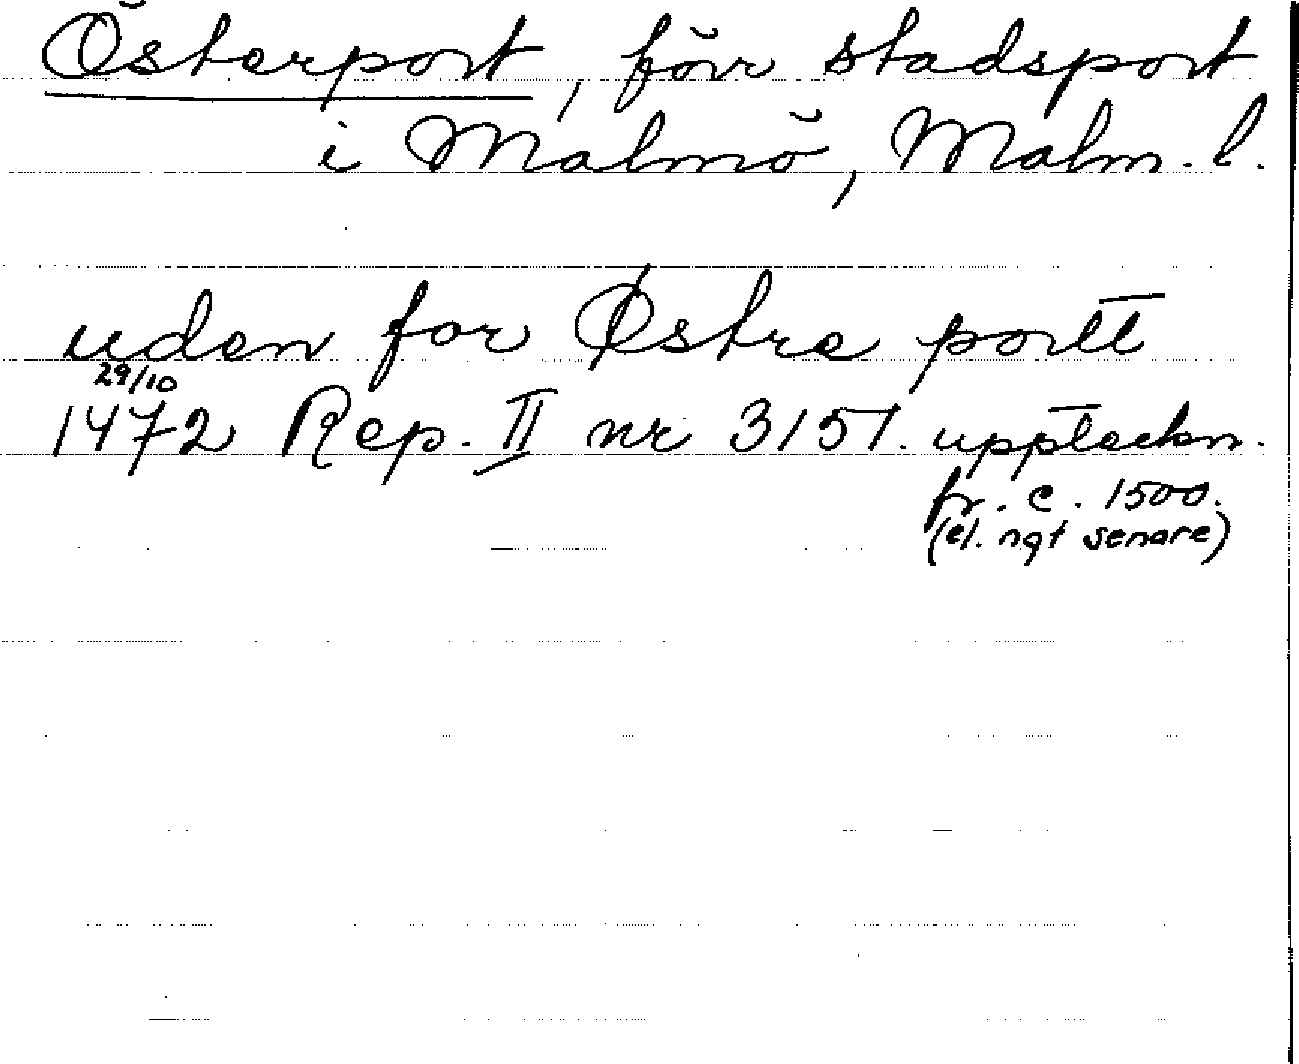 Österport, förr stadsport
i Malmö, Malm. l.
uden for Østre portt
29/10
1472 Rep. II nr 3151. uppteckn.
fr. c. 1500.
(el. ngt senare)